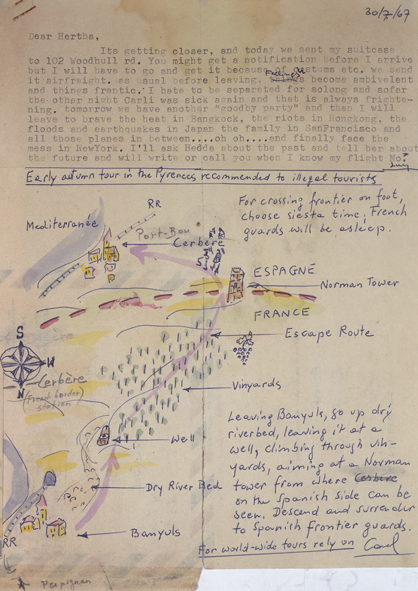 30/7/67
Dear Hertha,
Its getting closer, and today we sent my suitcase
to 102 Woodhull rd. You might get a notification before I arrive
but I will have to go and get it because of customs etc. we send
it airfreight. as usual before leaving, become ambivelent
and things frantic. I hate to be separated for solong and sofar
the other night Carli was sick again and that is always frighte-
ning. tomorrow we have another "goodby party" and than I will
leave to brave the heat in Bangkock, the riots in Hongkong, the
floods and earthquakes in Japan the family in SanFrancisco and
all those planes in between....oh oh....and finally face the
mess in NewYork. I'll ask Hedda about the past and tell her about
the future and will write or call you when I know my flight No.
Early autumn tour in the Pyrenees recommended to illegal tourists
RR
For crossing frontier on foot,
choose siesta time, French
guards will be asleep.
Mediterranée
Port-Bou
Cerbère
ESPAGNE
Norman Tower
FRANCE
Escape Route
S
W
N
Cerbère
(French border)
station
Vinyards
Well
Leaving Banyuls, go up dry
riverbed, leaving it at a
well, climbing through vin-
yards, aiming at a Norman
tower from where Cerbère
on the Spanish side can be
seen. Descend and surrender
to Spanish frontier guards.
Dry River Bed
Banyuls
RR
For world-wide tours rely on Carl
Perpignan